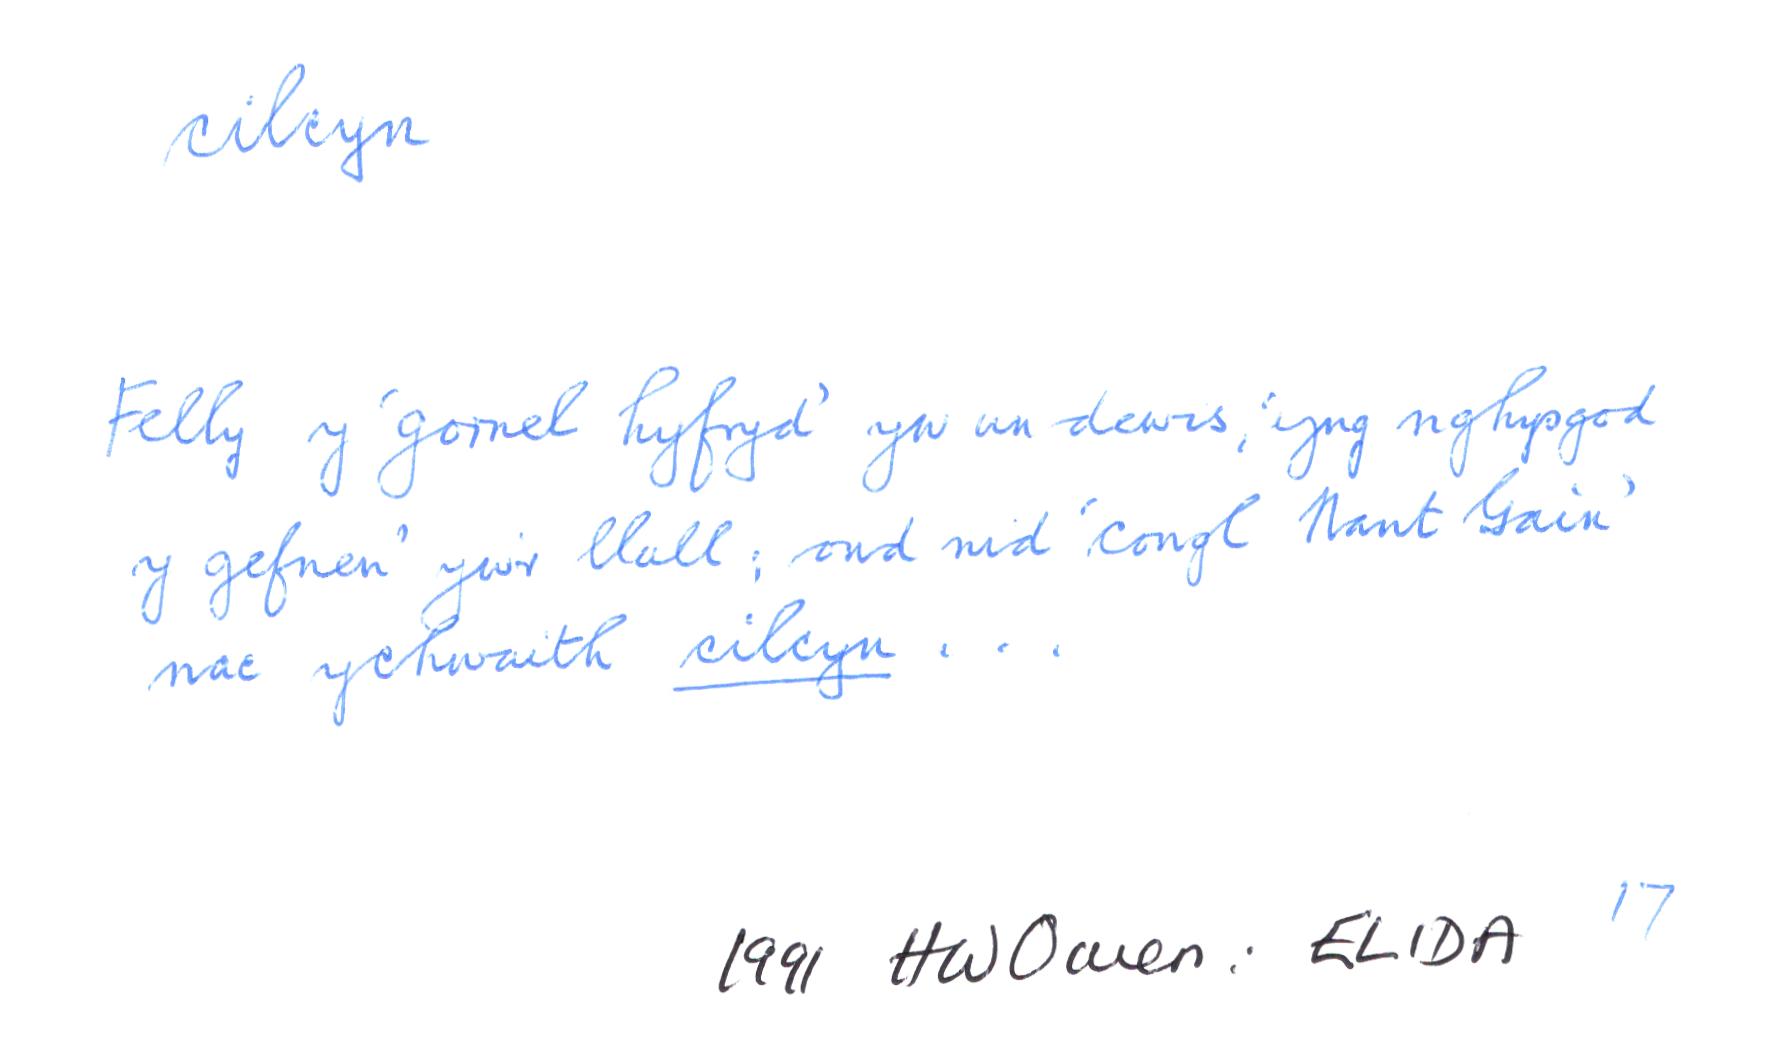 cilcyn
Felly y 'gornel hyfryd' yw un dewis, 'yng nghysgod
y gefnen' yw'r llall; ond nid 'congl Nant Gain'
nac ychwaith cilcyn . . .
17
1991 HW Owen: ELIDA